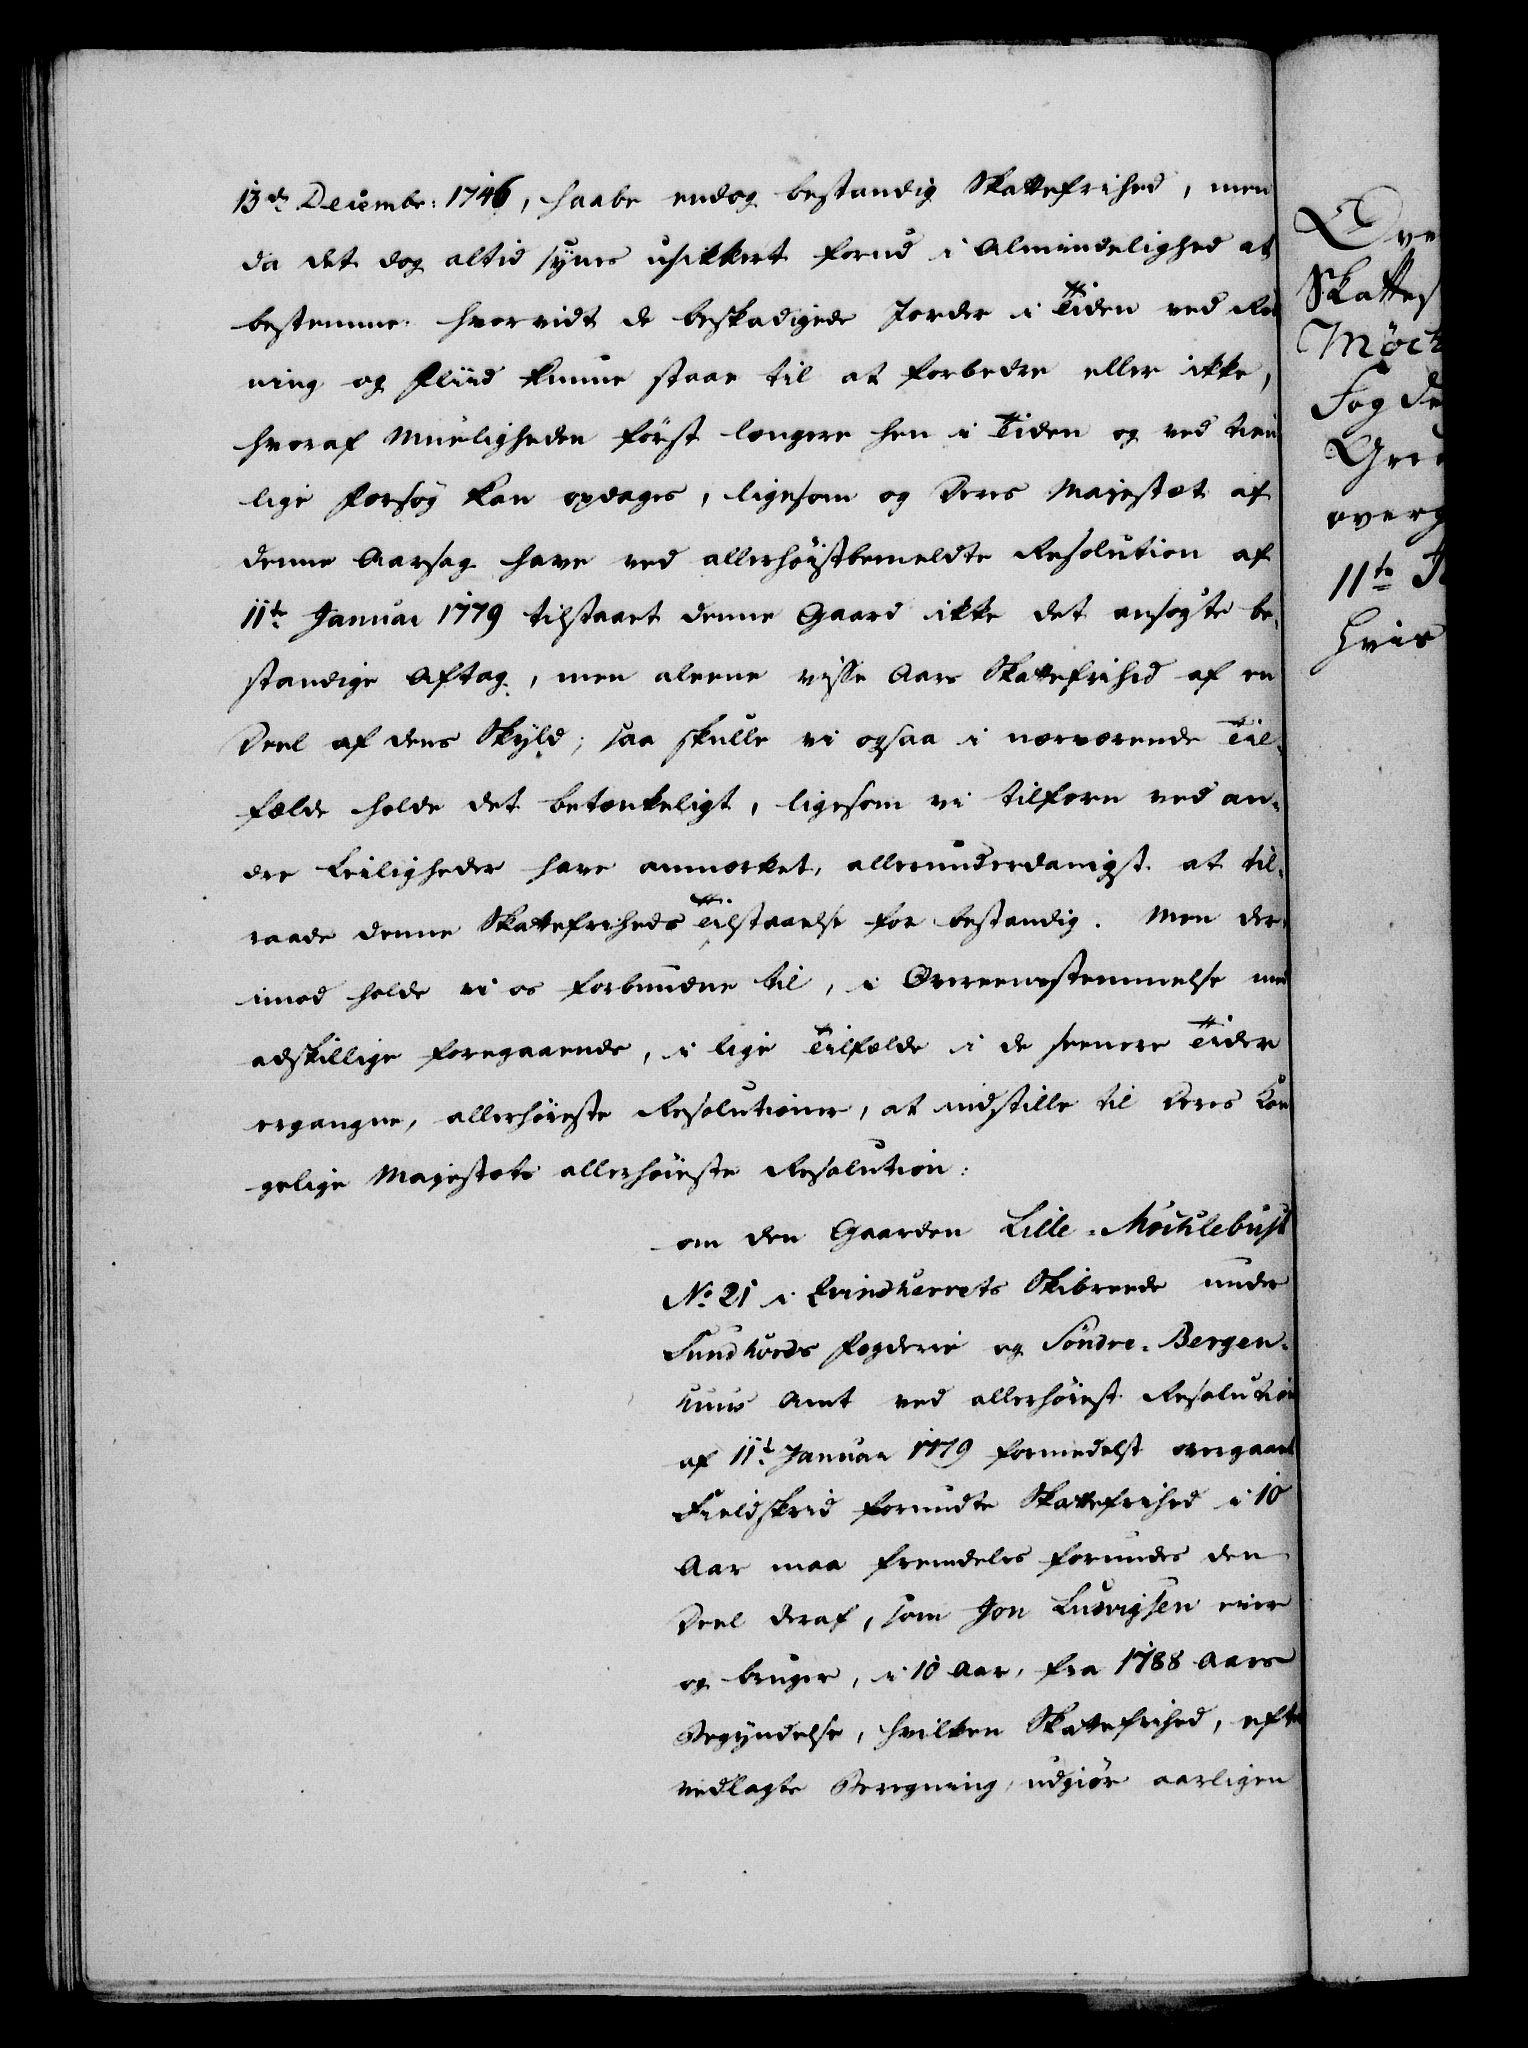 13de Decembr: 1746, haabe endog bestandig Skattefrihed, men
da det dog altid synes usikkert forud i Almindelighed at
bestemme hvorvidt de beskadigede Jorder i Tiden ved Röd
ning og Fliid kunne staae til at forbedre eller ikke,
hvoraf Mueligheden först længere hen i Tiden og ved tien
lige Forsög kan opdages, ligesom og Deres Majestæt af
denne Aarsag have ved allerhöistbemeldte Resolution af
11te Januar 1779 tilstaaet denne Gaard ikke det ansögte be-
standige Aftag, men aleene visse Aars Skattefrihed af en
Deel af dens Skyld; saa skulle vi ogsaa i nærværende Til-
fælde holde det betænkeligt, ligesom vi tilforn ved an-
dre Leiligheder have anmærket, allerunderdanigst at til-
raade denne Skattefriheds Tilstaaelse for bestandig. Men der-
imod holde vi os forbundne til, i Overeensstemmelse med
adskillige foregaaende, i lige Tilfælde i de seenere Tider
ergangne, allerhöieste Resolutioner, at indstille til Deres Kon
gelige Majestæts allerhöieste Resolution:
om den Gaarden Lille-Möchlebust
No 21 i Qvindherrets Skibreede under
Sundhords Fogderie og Söndre-Bergen-
huus Amt ved allerhöiest Resolution
af 11te Januar 1779 formedelst overgaaet
Fieldskrid forundte Skattefrihed i 10
Aar maa fremdeles forundes den
Deel deraf, som Jon Ludvigsen eier
og bruger, i 10 Aar, fra 1788 Aars
Begyndelse, hvilken Skattefrihed, efter
vedlagte Beregning, udgiör aarligen
Skattes
Möch
Fogde
overg
11te
hvis